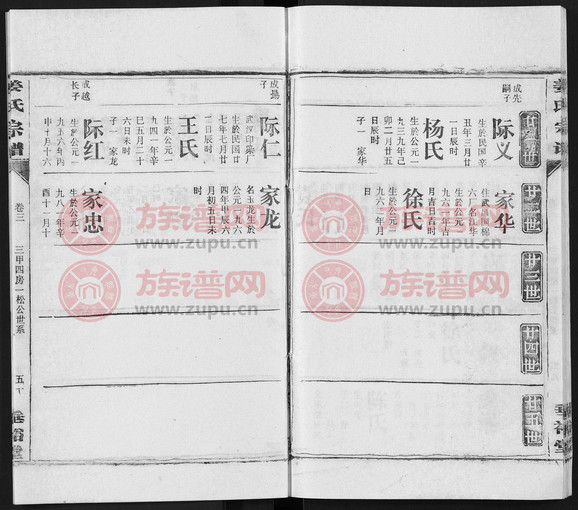 成先
嗣子
际义
生於民国辛
丑年三月廿
一日辰时
杨氏
生於公元一
九三九年己
卯二月廿五
日辰时
子一 家华
家华
住武昌国棉
六厂名江华
生於公元一
九六一年古
月吉日吉时
徐氏
生於公元一
九六二年月
日
廿三世
廿四世
廿五世
成扬
子
际仁
武汉印染厂
生於民国廿
七年七月廿
二日辰时
王氏
生於公元一
九四一年辛
巳五月二十
六日未时
子一 家龙
家龙
名玉龙生於
公元一九六
四年甲辰六
月初五日未
时
成越
长子
际红
生於公元一
九五六年丙
申十月十六
家忠
生於公元一
九八一年辛
酉十一月十
姜氏宗谱
卷三
三甲四房一松公世系
五十
华裕堂
族谱网
www.zupu.cn
族谱网
www.zupu.cn
族谱网
www.zupu.cn
族谱网
www.zupu.cn